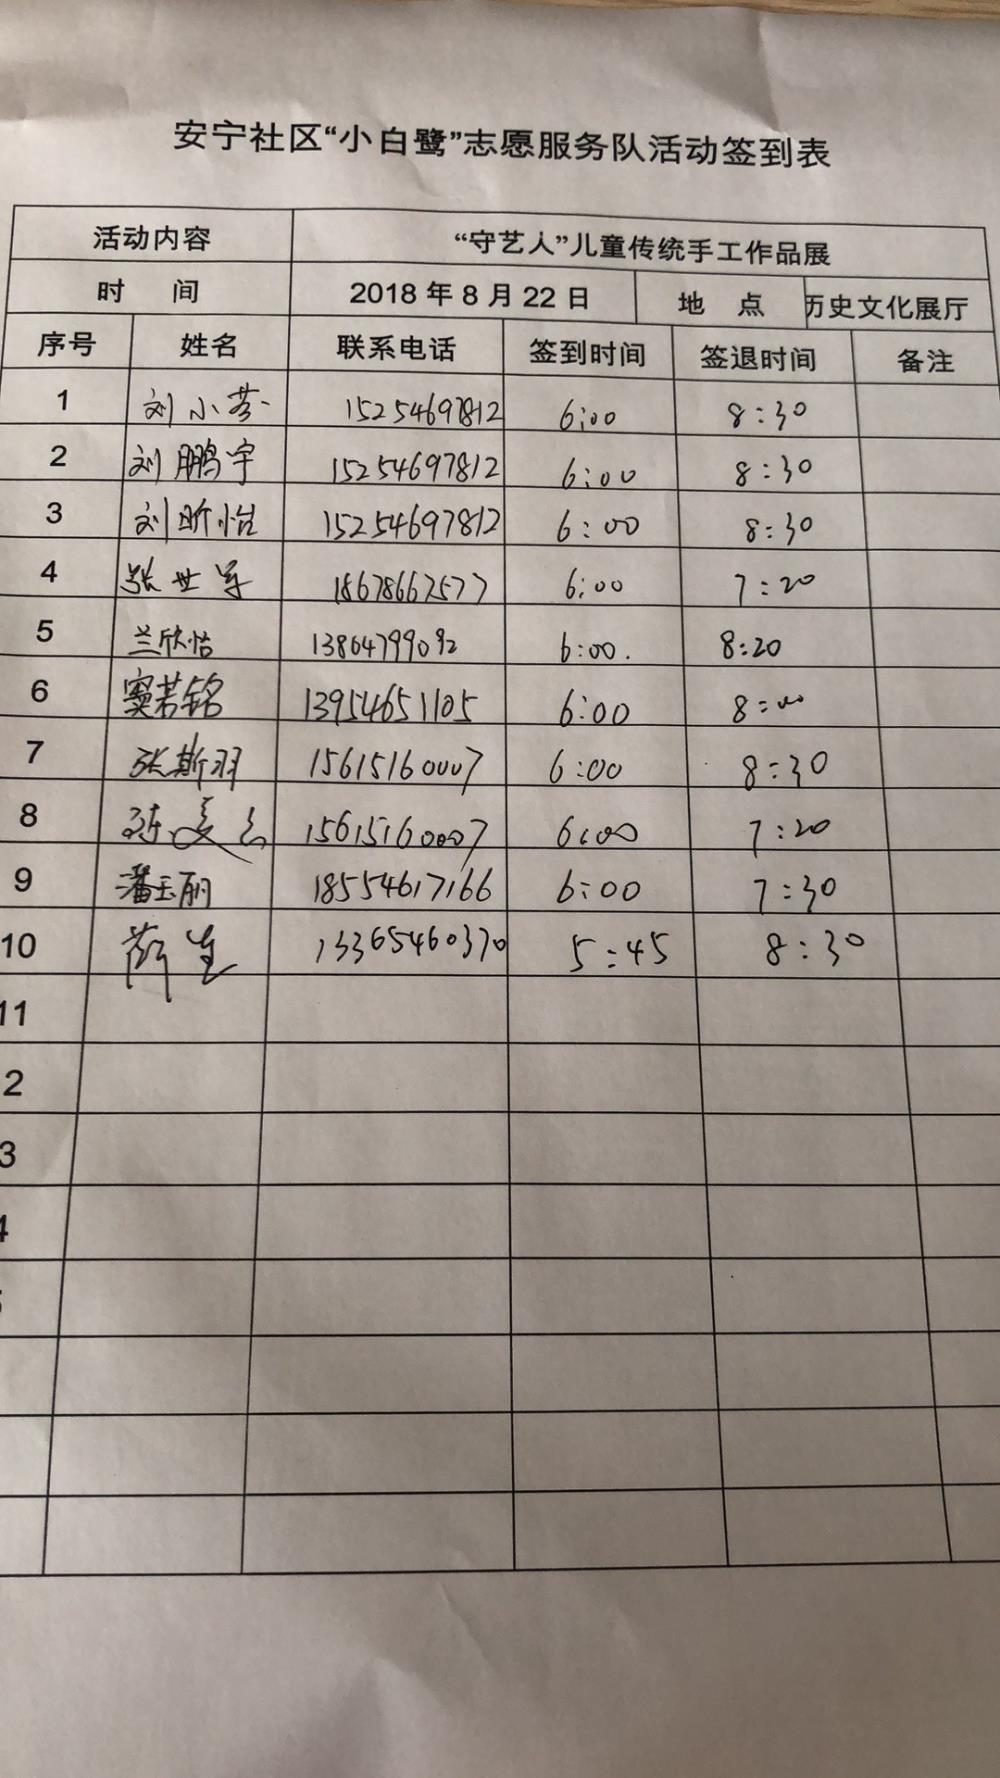 安宁社区“小白鹭”志愿服务队活动签到表
活动内容 “守艺人”儿童传统手工作品展
时 间 2018 年 8 月 22 日 地 点 历史文化展厅
序号 姓名 联系电话 签到时间 签退时间 备注
1 刘小芬 15254697812 6:00 8:30
2 刘鹏宇 15254697812 6:00 8:30
3 刘昕怡 15254697812 6:00 8:30
4 张世军 18678667577 6:00 7:20
5 兰欣怡 13864799092 6:00. 8:20
6 窦若铭 13954651105 6:00 8:00
7 张斯羽 15615160007 6:00 8:30
8 15615160007 6:00 7:20
9 潘玉丽 18554617166 6:00 7:30
10 13365460370 5:45 8:30
11
2
3
4
5